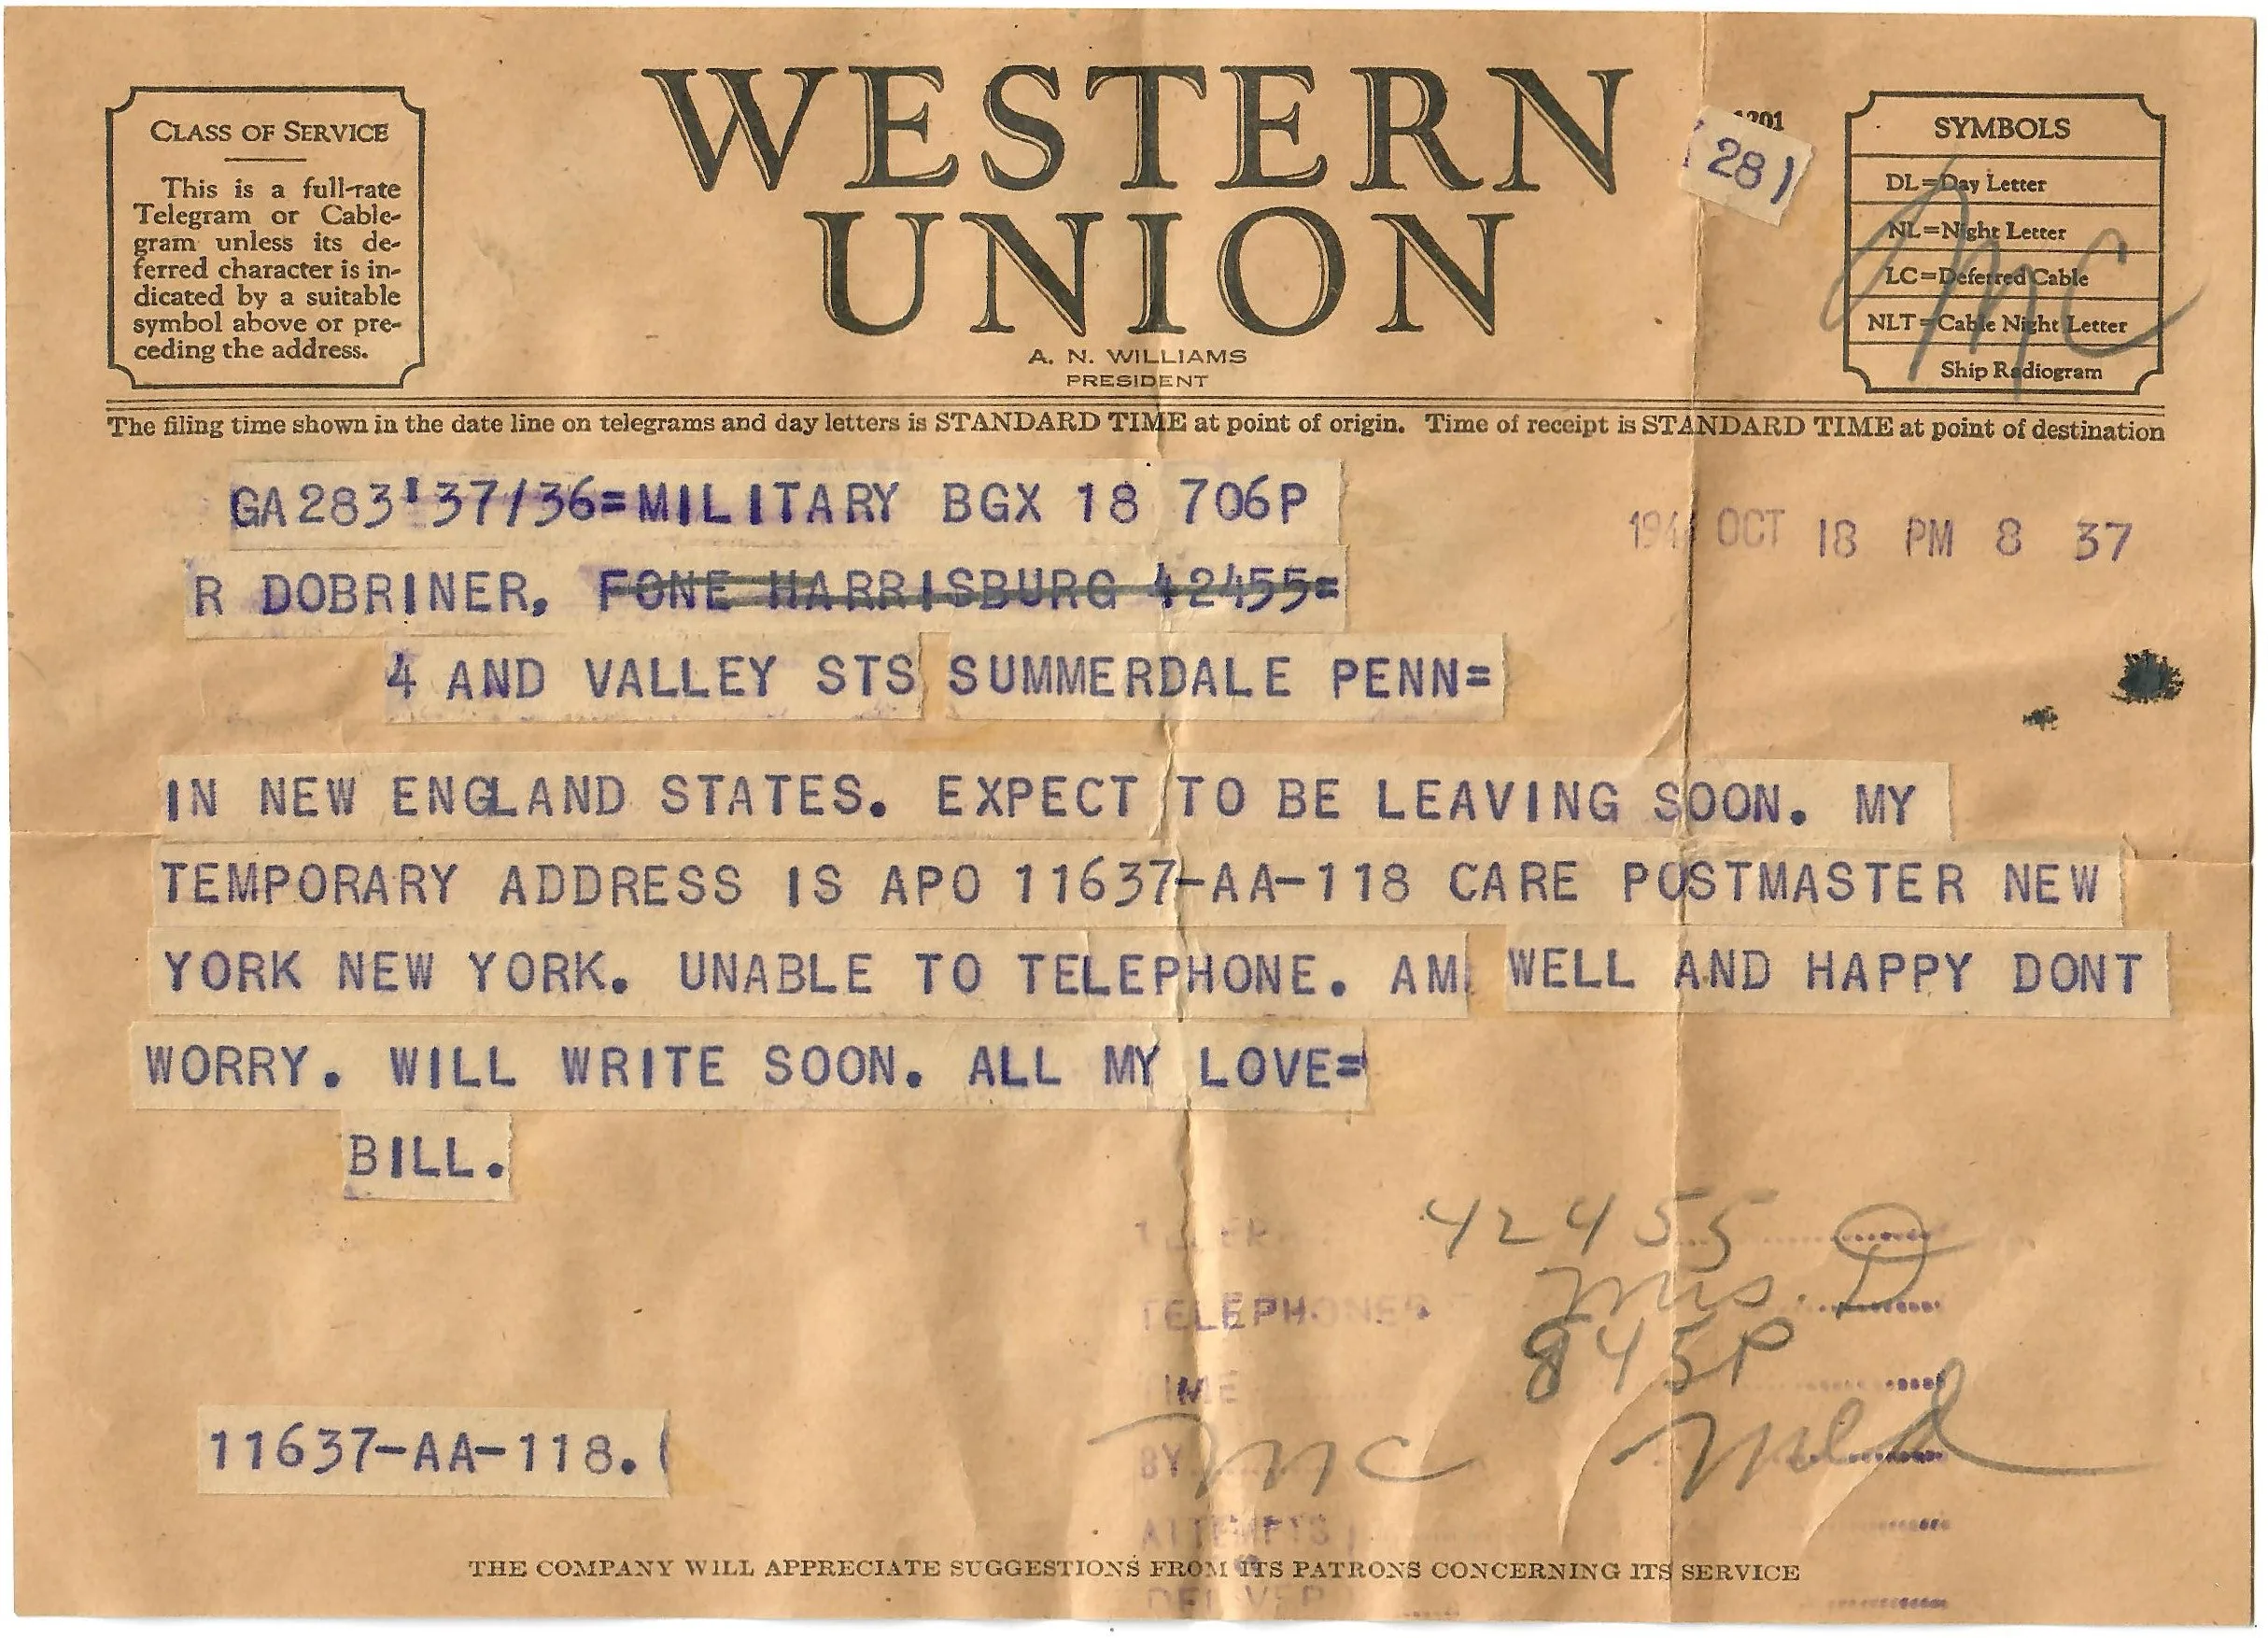 CLASS OF SERVICE
This is a full-rate
Telegram or Cable-
gram unless its de-
ferred character is in-
dicated by a suitable
symbol above or pre-
ceding the address.
WESTERN
UNION
A. N. WILLIAMS
PRESIDENT
1201
(28)
SYMBOLS
DL=Day Letter
NL=Night Letter
LC=Deferred Cable
NLT=Cable Night Letter
Ship Radiogram
mc
The filing time shown in the date line on telegrams and day letters is STANDARD TIME at point of origin. Time of receipt is STANDARD TIME at point of destination
GA283 37/36=MILITARY BGX 18 706P
OCT 18 PM 8 37
R DOBRINER, FONE HARRISBURG 42455=
4 AND VALLEY STS SUMMERDALE PENN=
IN NEW ENGLAND STATES. EXPECT TO BE LEAVING SOON. MY
TEMPORARY ADDRESS IS APO 11637-AA-118 CARE POSTMASTER NEW
YORK NEW YORK. UNABLE TO TELEPHONE. AM WELL AND HAPPY DONT
WORRY. WILL WRITE SOON. ALL MY LOVE=
BILL.
42455
TELEPHONED Mrs. D
TIME 845P
BY mc mld
11637-AA-118.(
ATTEMPTS
THE COMPANY WILL APPRECIATE SUGGESTIONS FROM ITS PATRONS CONCERNING ITS SERVICE
DELIVER